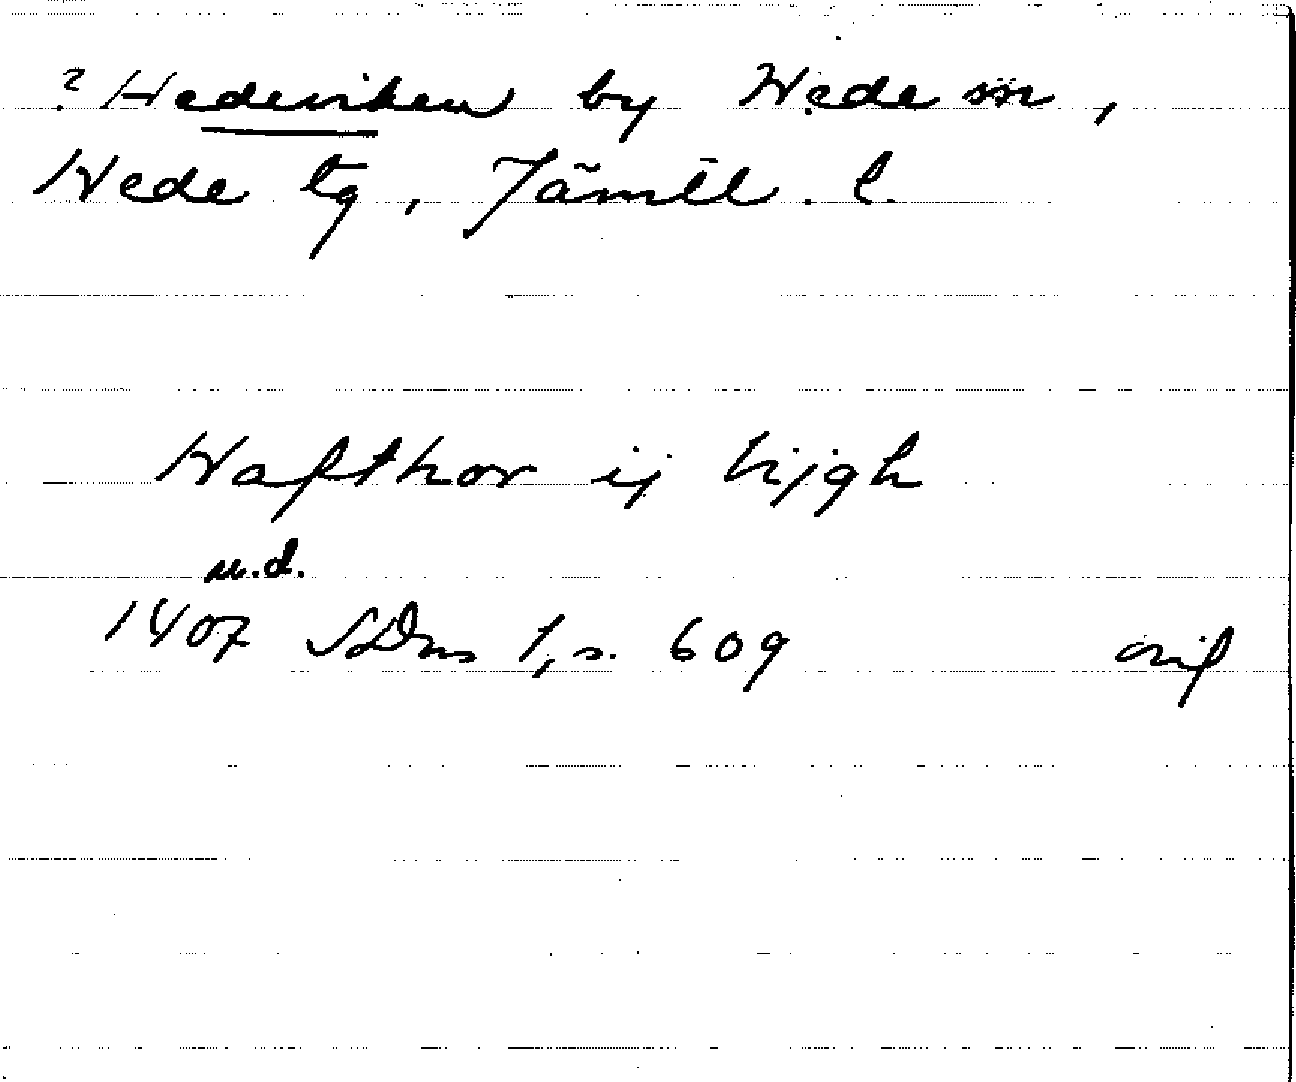 ? Hedeviken by Hede sn,
Hede tg, Jämtl. l.
Hafthor ij Vijgh
u.d.
1407 SDns 1, s. 609 orig